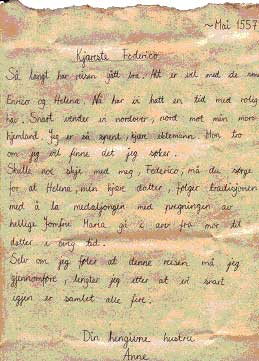 ~Mai 1557
Kjæreste Federico
Så langt har reisen gått bra. Alt er vel med de små
Enrico og Helena. Nå har vi hatt en tid med rolig
hav. Snart vender vi nordover, nord mot min mors
hjemland. Jeg er så spent, kjære ektemann. Mon tro
om jeg vil finne det jeg søker.
Skulle noe skje med meg, Federico, må du sørge
for at Helena, min kjære datter, følger tradisjonen
med å la medaljongen med pregningen av
hellige Jomfru Maria gå i arv fra mor til
datter i evig tid.
Selv om jeg føler at denne reisen må jeg
gjennomføre, lengter jeg etter at vi snart
igjen er samlet alle fire.
Din hengivne hustru
Anne